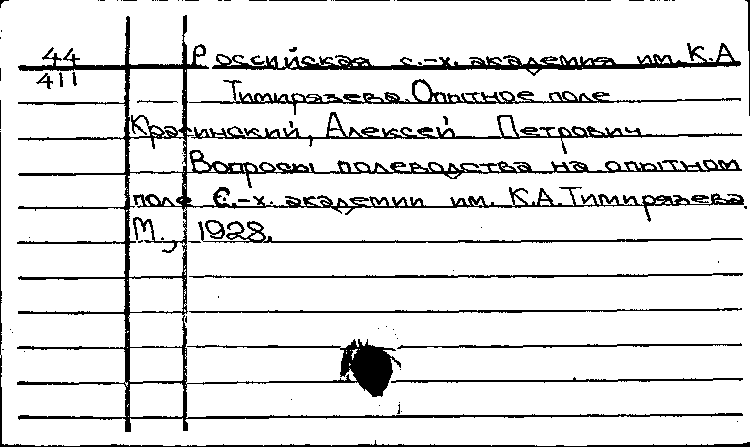 44
411
Российская с.-х. академия им. К.А
Тимирязева. Опытное поле
Красинский, Алексей Петрович
Вопросы полеводства на опытном
поле С.-х. академии им. К.А. Тимирязева.
М., 1928.